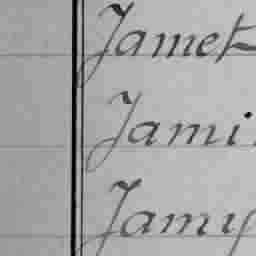 Jamet
Jami
Jamy